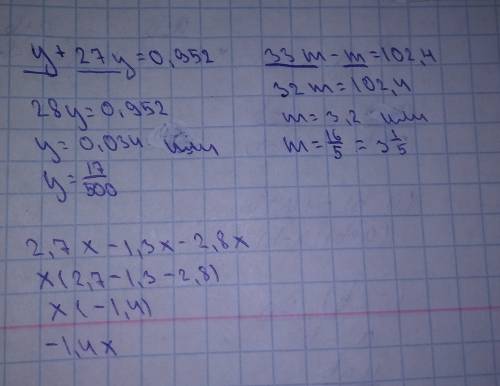 y + 27y = 0,952
28y = 0,952
y = 0,034 или
y = 17/500
33m - m = 102,4
32m = 102,4
m = 3,2 или
m = 16/5 = 3 1/5
2,7x - 1,3x - 2,8x
x(2,7 - 1,3 - 2,8)
x(-1,4)
-1,4x